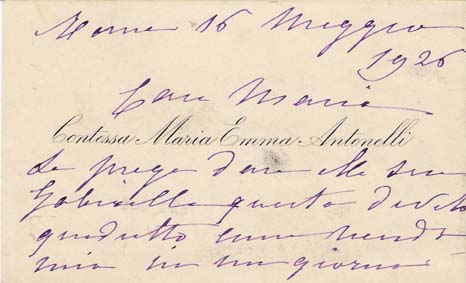 Roma 16 Maggio
1926
Cara Maria
Contessa Maria Emma Antonelli
La prego dare alla sua
Gabriella questo
quadretto
mio in un giorno